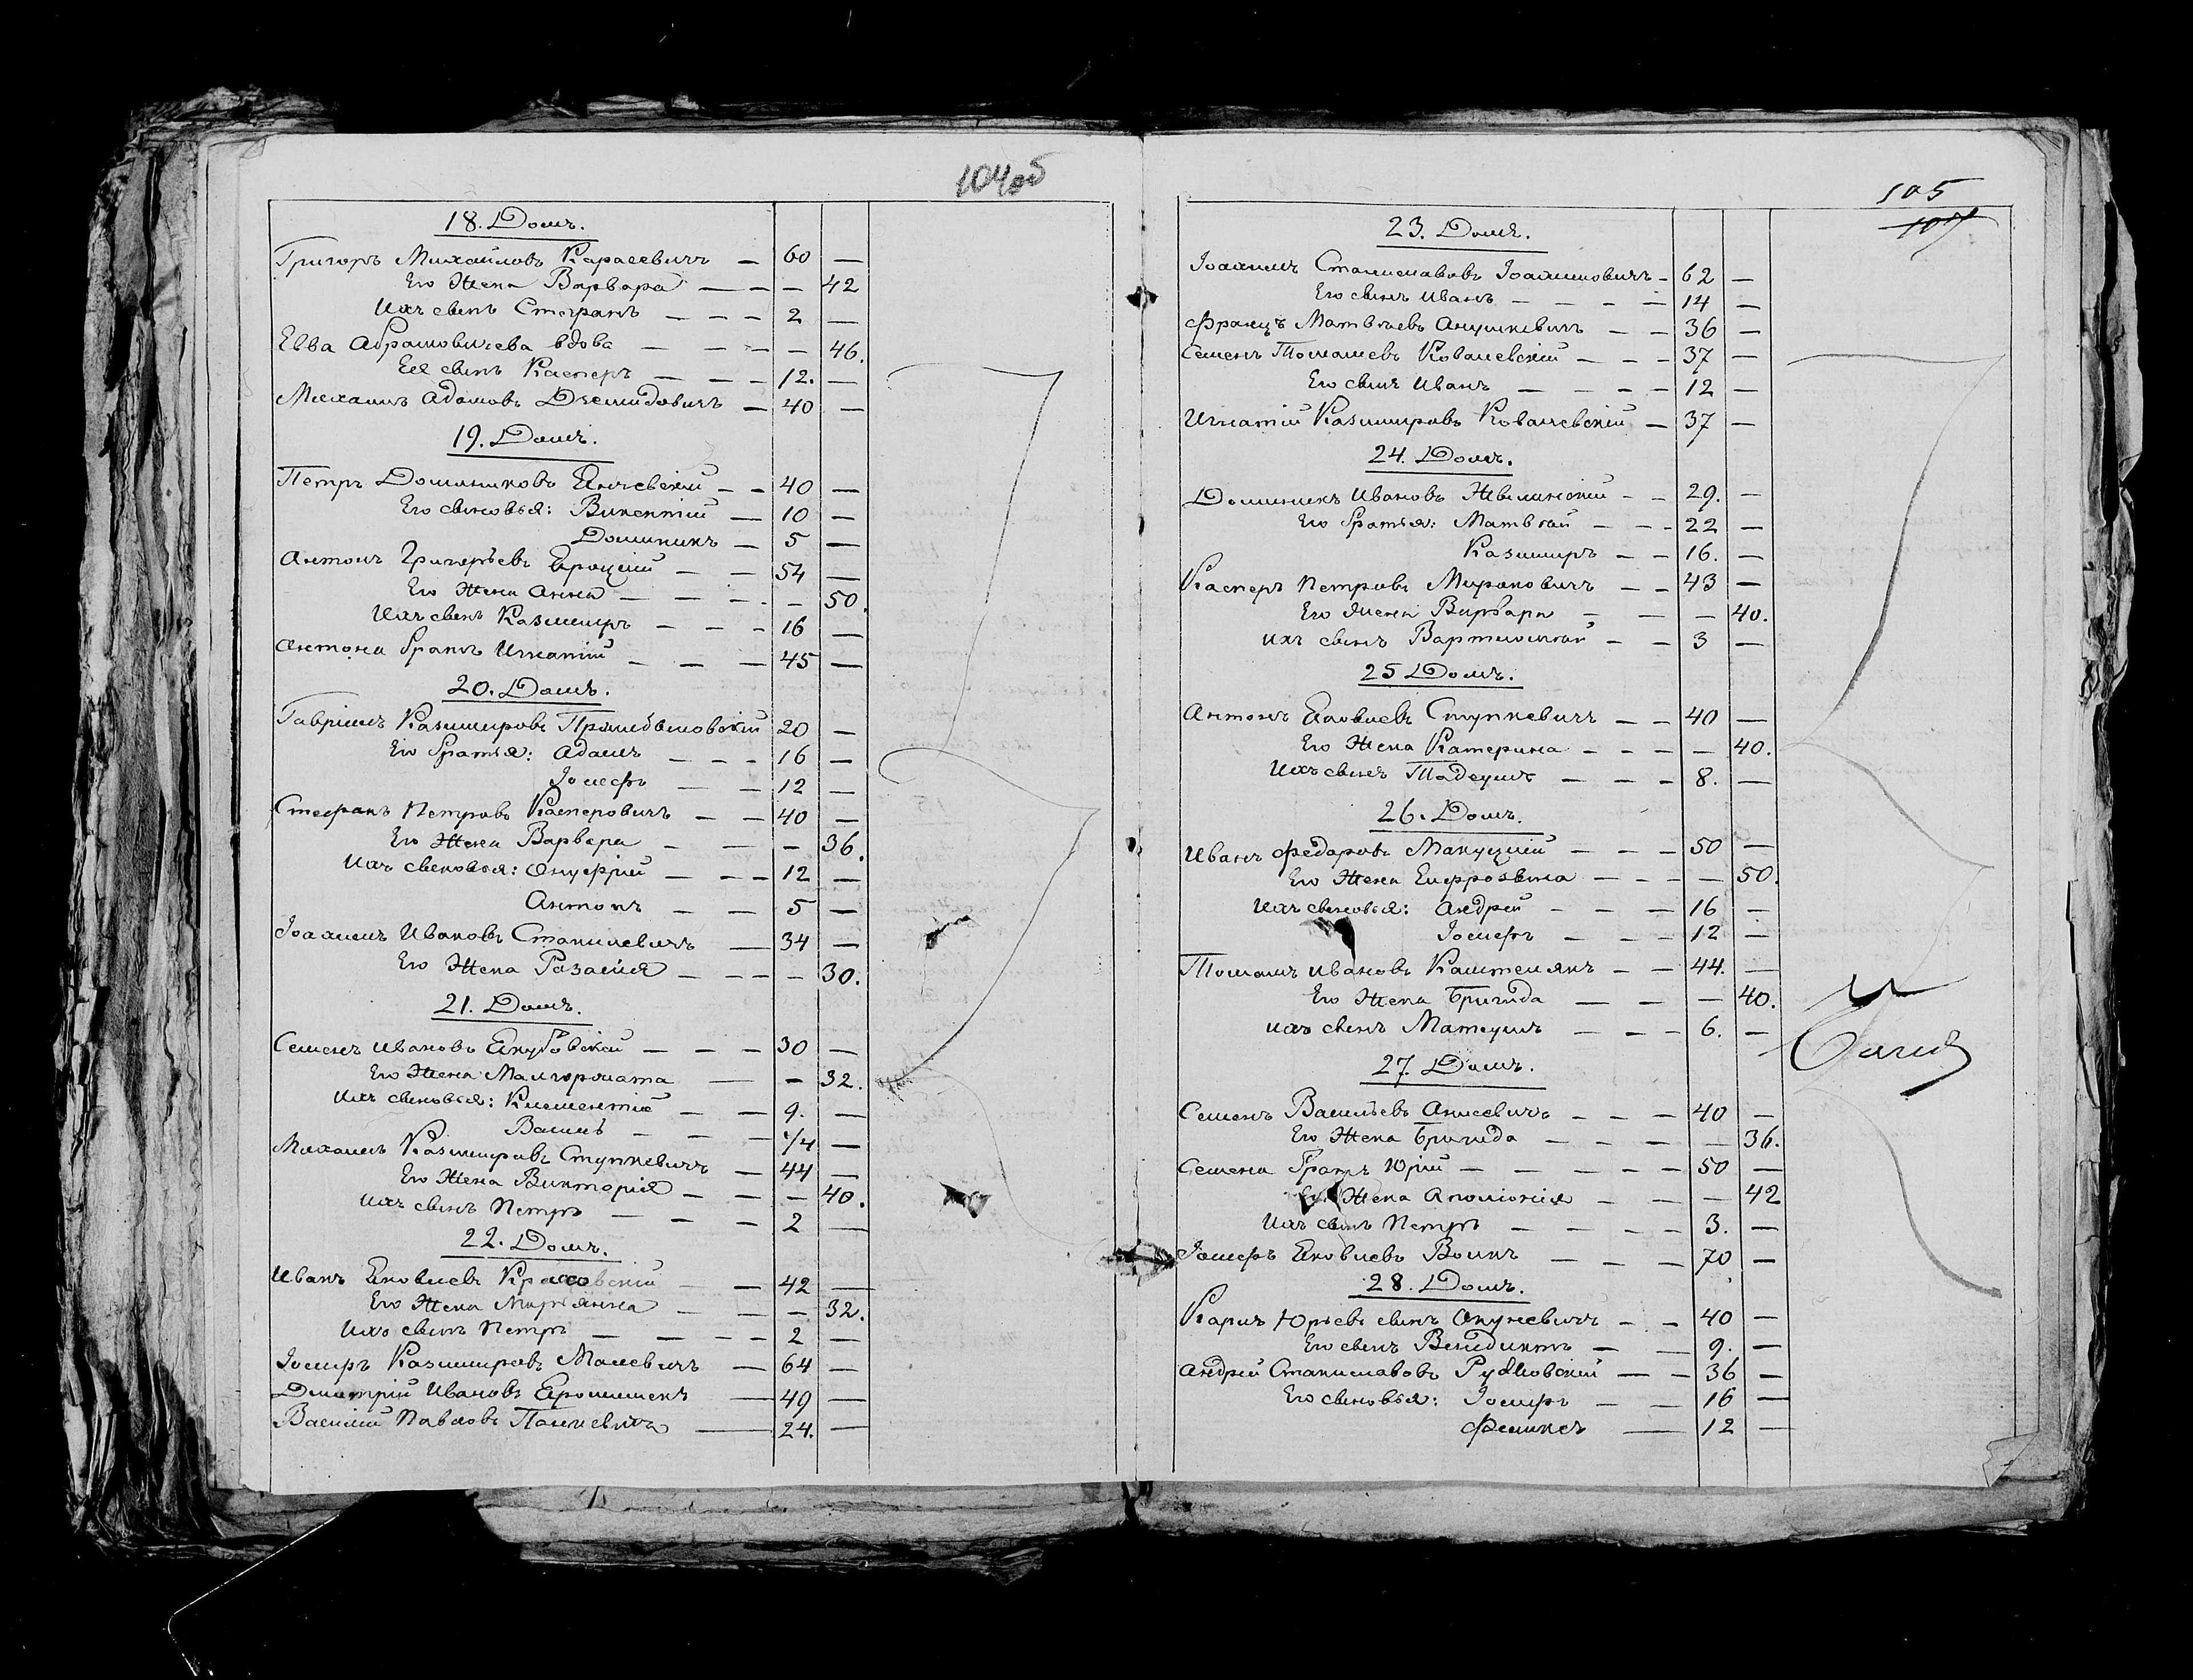 104об
18. Домъ.
Григоръ Михайловъ Карасевичъ — 60 —
Его Жена Варвара — — — 42
Ихъ сынъ Стефанъ — — — 2 —
Евва Абрамовичева вдова — — — — 46.
Ея сынъ Касперъ — — — 12. —
Михаилъ Адамовъ Дземидовичъ — 40 —
19. Домъ.
Петръ Доминиковъ — — 40 —
Его сыновья: Викентій — 10 —
Доминикъ — 5 —
Антонъ Григорьевъ — — 54 —
Его Жена Анна — — — — 50.
Ихъ сынъ Казимиръ — — — 16 —
Антона братъ Игнатій — — — 45 —
20. Домъ.
Гавріилъ Казимировъ 20 —
Его братья: Адамъ — — — 16 —
Іосифъ — — 12 —
Стефанъ Петровъ Касперовичъ — — 40 —
Его Жена Варвара — — — 36.
Ихъ сыновья: Онуфрій — — — 12 —
Антонъ — — 5 —
Іоахимъ Ивановъ Станилевичъ — 34 —
Его Жена Розалія — — — — 30.
21. Домъ.
Семенъ Ивановъ Якубовскій — — — 30 —
Его Жена Малгоржата — — 32.
Ихъ сыновья: Климентій — — 9. —
Василь — — — 1/4 —
Михаилъ Казимировъ Ступкевичъ — 44 —
Его Жена Викторія — — — 40.
Ихъ сынъ Петръ — — — 2 —
22. Домъ.
Иванъ Яковлевъ Красовскій — — 42 —
Его Жена Марьянна — — — 32.
Ихъ сынъ Петръ — — — — 2 —
Іосифъ Казимировъ Малевичъ — 64 —
Дмитрій Ивановъ Ярошишекъ — 49 —
Василій Павловъ — 24. —
105
107
23. Домъ.
Іоахимъ Станиславовъ Іоахимовичъ — 62 —
Его сынъ Иванъ — — — — 14 —
Францъ Матвѣевъ Анушкевичъ — — 36 —
Семенъ Томашевъ Ковалевскій — — — 37 —
Его сынъ Иванъ — — — — 12 —
Игнатій Казимировъ Ковалевскій — 37 —
24. Домъ.
Доминикъ Ивановъ Жвилинскій — — 29. —
Его братья: Матвѣй — — — 22 —
Казимиръ — — 16. —
Касперъ Петровъ Мироновичъ — — 43 —
Его Жена Варвара — — — 40.
ихъ сынъ Вартоломѣй — — 3 —
25 Домъ.
Антонъ Яковлевъ Ступкевичъ — — 40 —
Его Жена Катерина — — — — 40.
Ихъ сынъ Тадеушъ — — — 8. —
26. Домъ.
Иванъ Федаровъ Макуцкій — — — 50 —
Его Жена Ефрозына — — — — 50.
Ихъ сыновья: Андрей — — — 16 —
Іосифъ — — — 12 —
Томашъ Ивановъ Каштелянъ — — 44. —
Его Жена Бригида — — — 40.
ихъ сынъ Матеушъ — — — 6. —
27. Домъ.
Семенъ Васильевъ Алисевичъ — — — 40 —
Его Жена Бригида — — — — 36.
Семена братъ Юрій — — — — — 50 —
Его Жена Аполіонія — — — 42
Ихъ сынъ Петръ — — — — 3. —
Іосифъ Яковлевъ Волкъ — — — 70 —
28. Домъ.
Карлъ Юрьевъ сынъ Окуневичъ — — 40 —
Его сынъ Бенедиктъ — — 9. —
Андрей Станиславовъ — — 36 —
Его сыновья: Іосифъ — — 16 —
Феликсъ — 12 —